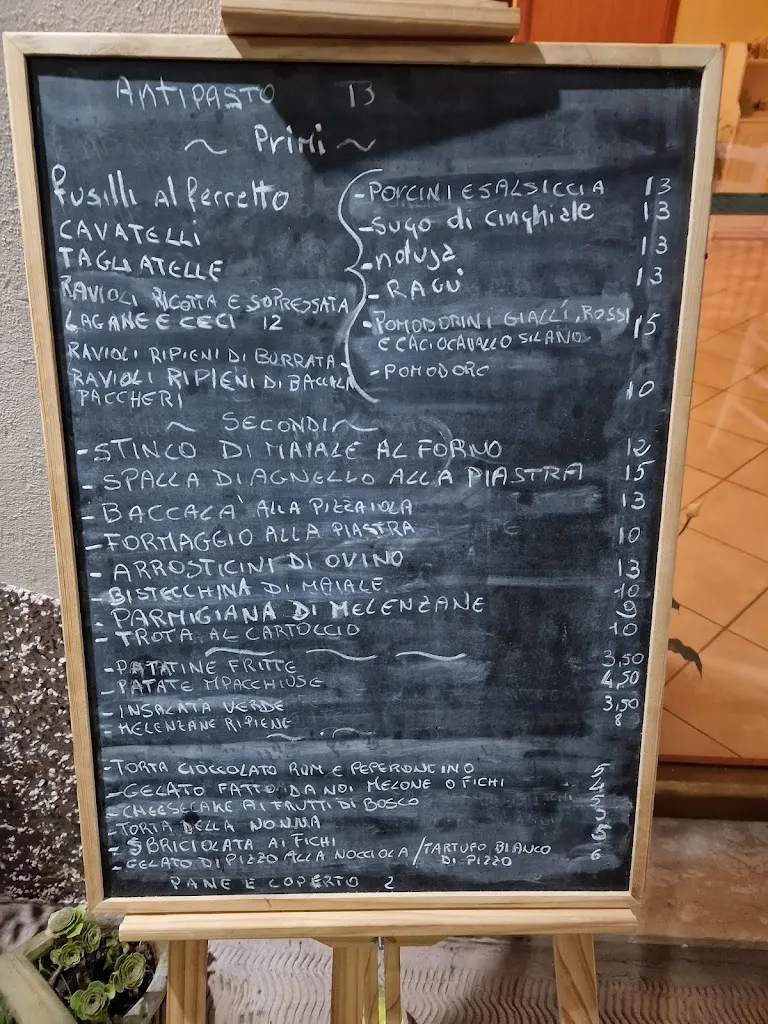 ANTIPASTO 13
~ PRIMI ~
fusilli al ferretto
CAVATELLI
TAGLIATELLE
RAVIOLI RICOTTA E SOPRESSATA
LAGANE E CECI 12
RAVIOLI RIPIENI DI BURRATA
RAVIOLI RIPIENI DI BACCALA
PACCHERI
- PORCINI E SALSICCIA 13
- sugo di cinghiale 13
- nduja 13
- RAGU' 13
- POMODORINI GIALLI, ROSSI
E CACIOCAVALLO SILANO 15
- POMODORO 10
~ SECONDI ~
- STINCO DI MAIALE AL FORNO 12
- SPALLA DI AGNELLO ALLA PIASTRA 15
- BACCALA' ALLA PIZZAIOLA 13
- FORMAGGIO ALLA PIASTRA 10
- ARROSTICINI DI OVINO 13
- BISTECCHINA DI MAIALE 10
- PARMIGIANA DI MELENZANE 9
- TROTA AL CARTOCCIO 10
- PATATINE FRITTE 3,50
- PATATE MPACCHIUSE 4,50
- INSALATA VERDE 3,50
- MELENZANE RIPIENE 8
- TORTA CIOCCOLATO RUM E PEPERONCINO 5
- GELATO FATTO DA NOI MELONE O FICHI 4
- CHEESECAKE AI FRUTTI DI BOSCO 5
- TORTA DELLA NONNA 5
- SBRICIOLATA AI FICHI 5
- GELATO DI PIZZO ALLA NOCCIOLA / TARTUFO BIANCO
DI PIZZO 6
PANE E COPERTO 2